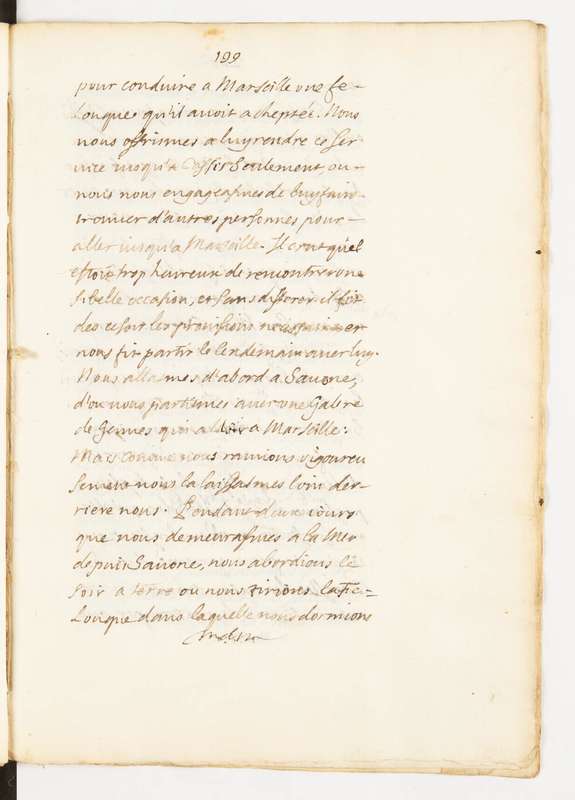 199
pour conduire a Marseille une fe-
louque qu'il avoit acheptée. Nous
nous offrismes a luy rendre ce ser
vice iusqu'a Seulement, ou
nous nous engageasmes de luy faire
trouver d'autres personnes pour
aller iusqu'a Marseille. Il crut qu'el
estoit trop heureux de rencontrer une
si belle occasion, et sans differer il fit
des ce soir les provisions necessaires et
nous fit partir le lendemain avec luy.
Nous allasmes d'abord a Savone,
d'ou nous partismes avec une Galere
de Gennes qui a Marseille:
Mais comme nous ramions vigoureu
sement nous la laissasmes loin der-
riere nous. Pendant deux iours
que nous demeurasmes a la Mer
depuis Savone, nous abordions le
soir a terre ou nous tirions la fe-
louque dans laquelle nous dormions